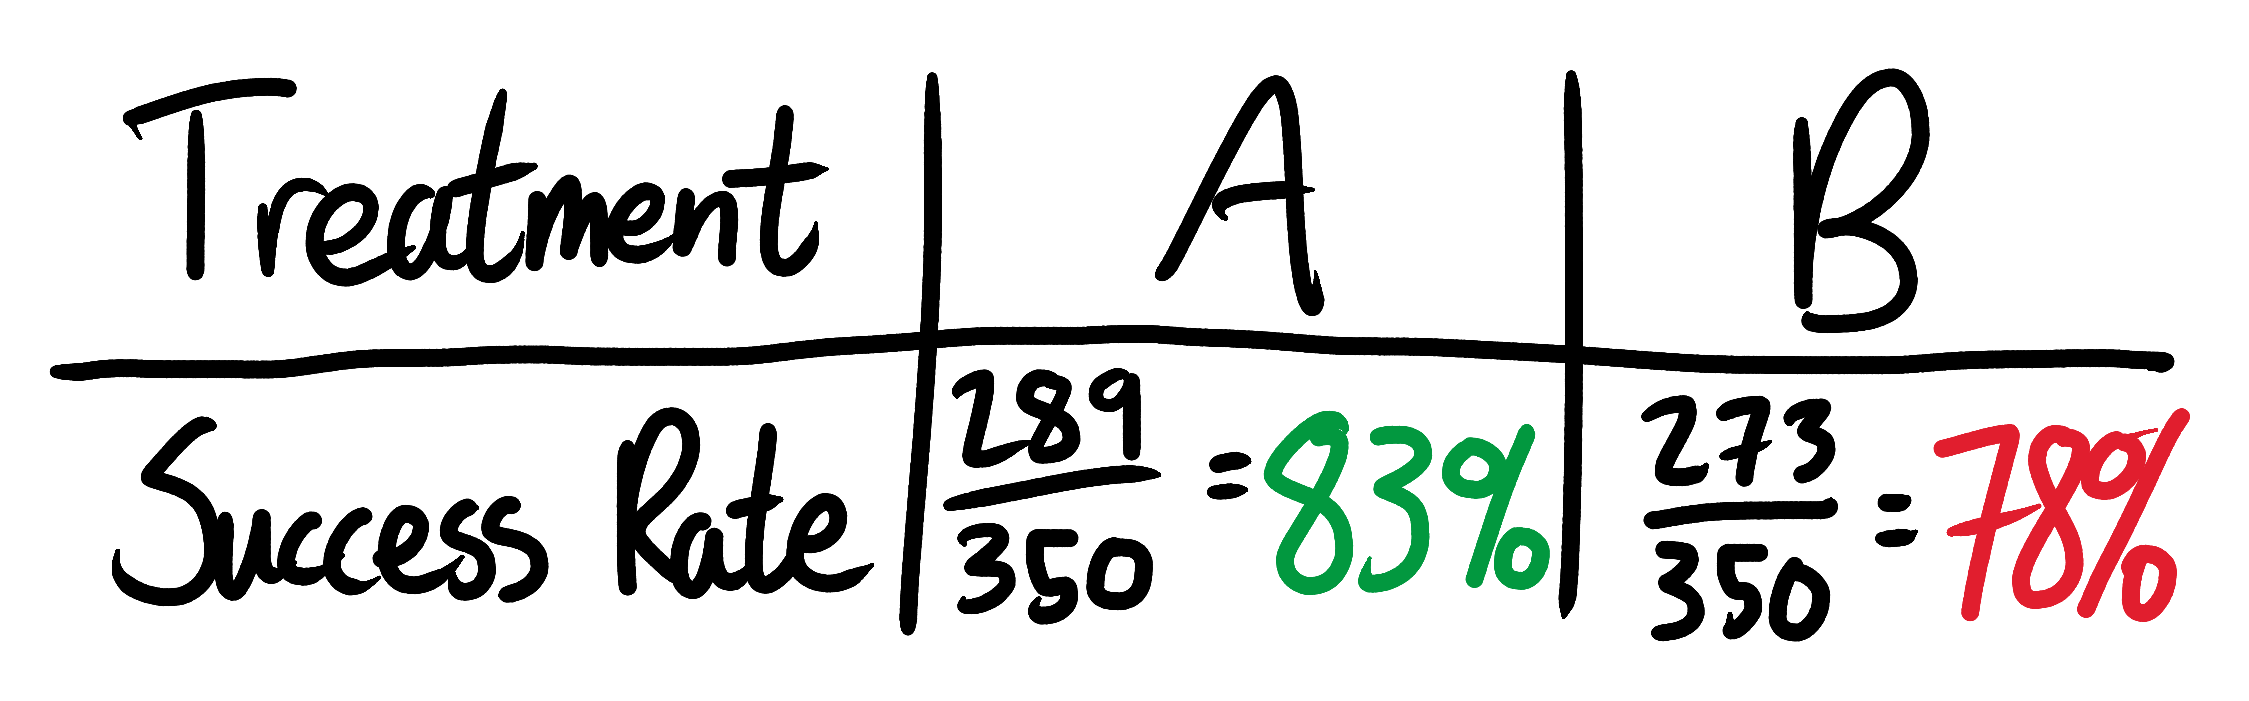 Treatment A B
Success Rate 289/350 = 83% 273/350 = 78%